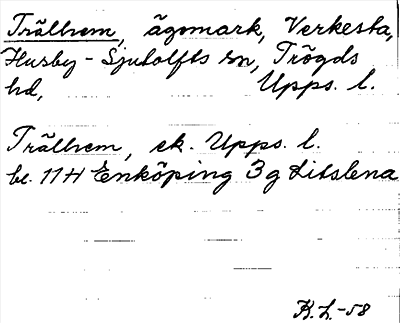 Trälhem, ägomark, Verkesta,
Husby-Sjutolfts sn, Trögds
hd, Upps. l.
Trälhem, ek. Upps. l.
bl. 11H Enköping 3g Litslena
K.L.-58